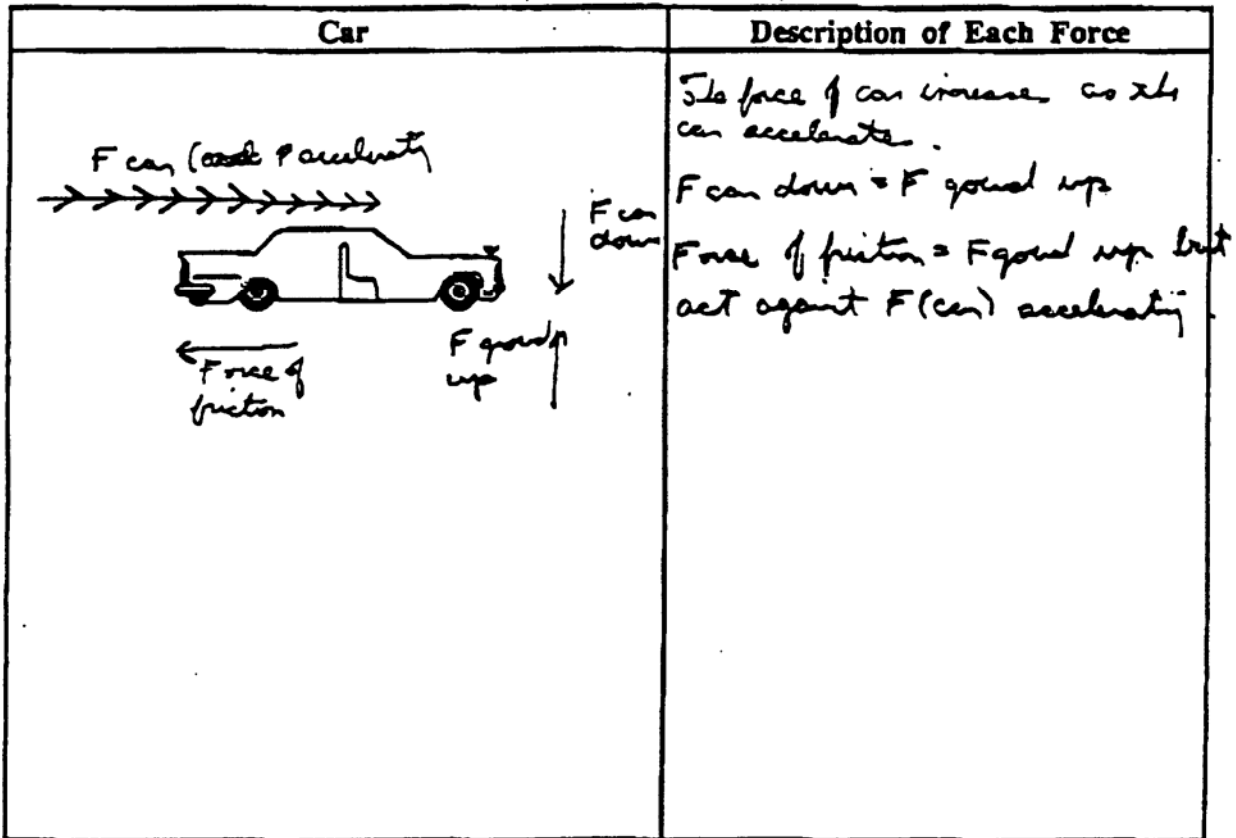 Car
Description of Each Force
F car ( accelerating
F car
down
Force of
friction
F ground
up
The force of car increases as the
car accelerates.
F car down = F gound up
Force of friction = F gound up but
act against F (car) accelerating.